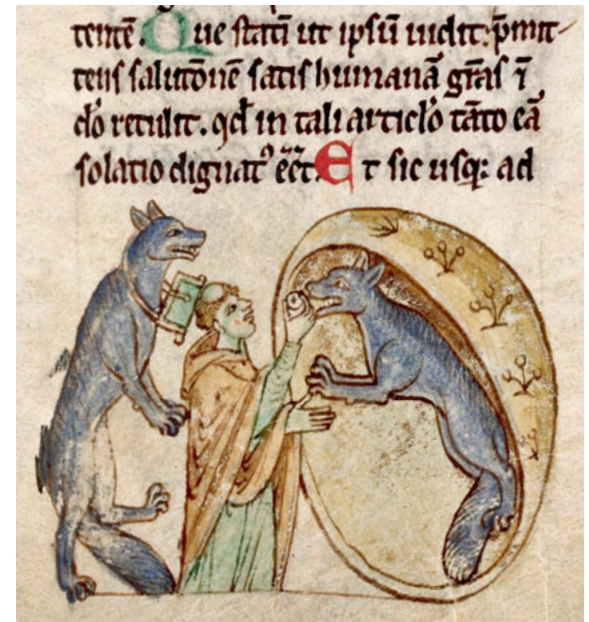 tentē. Que statī ut ipsū uidit: p̄mit-
tens salutōnē satis humanā grās
do retulit. qđ in tali articlo tāto eā
solatio dignatꝰ eēt. Et sic usq; ad